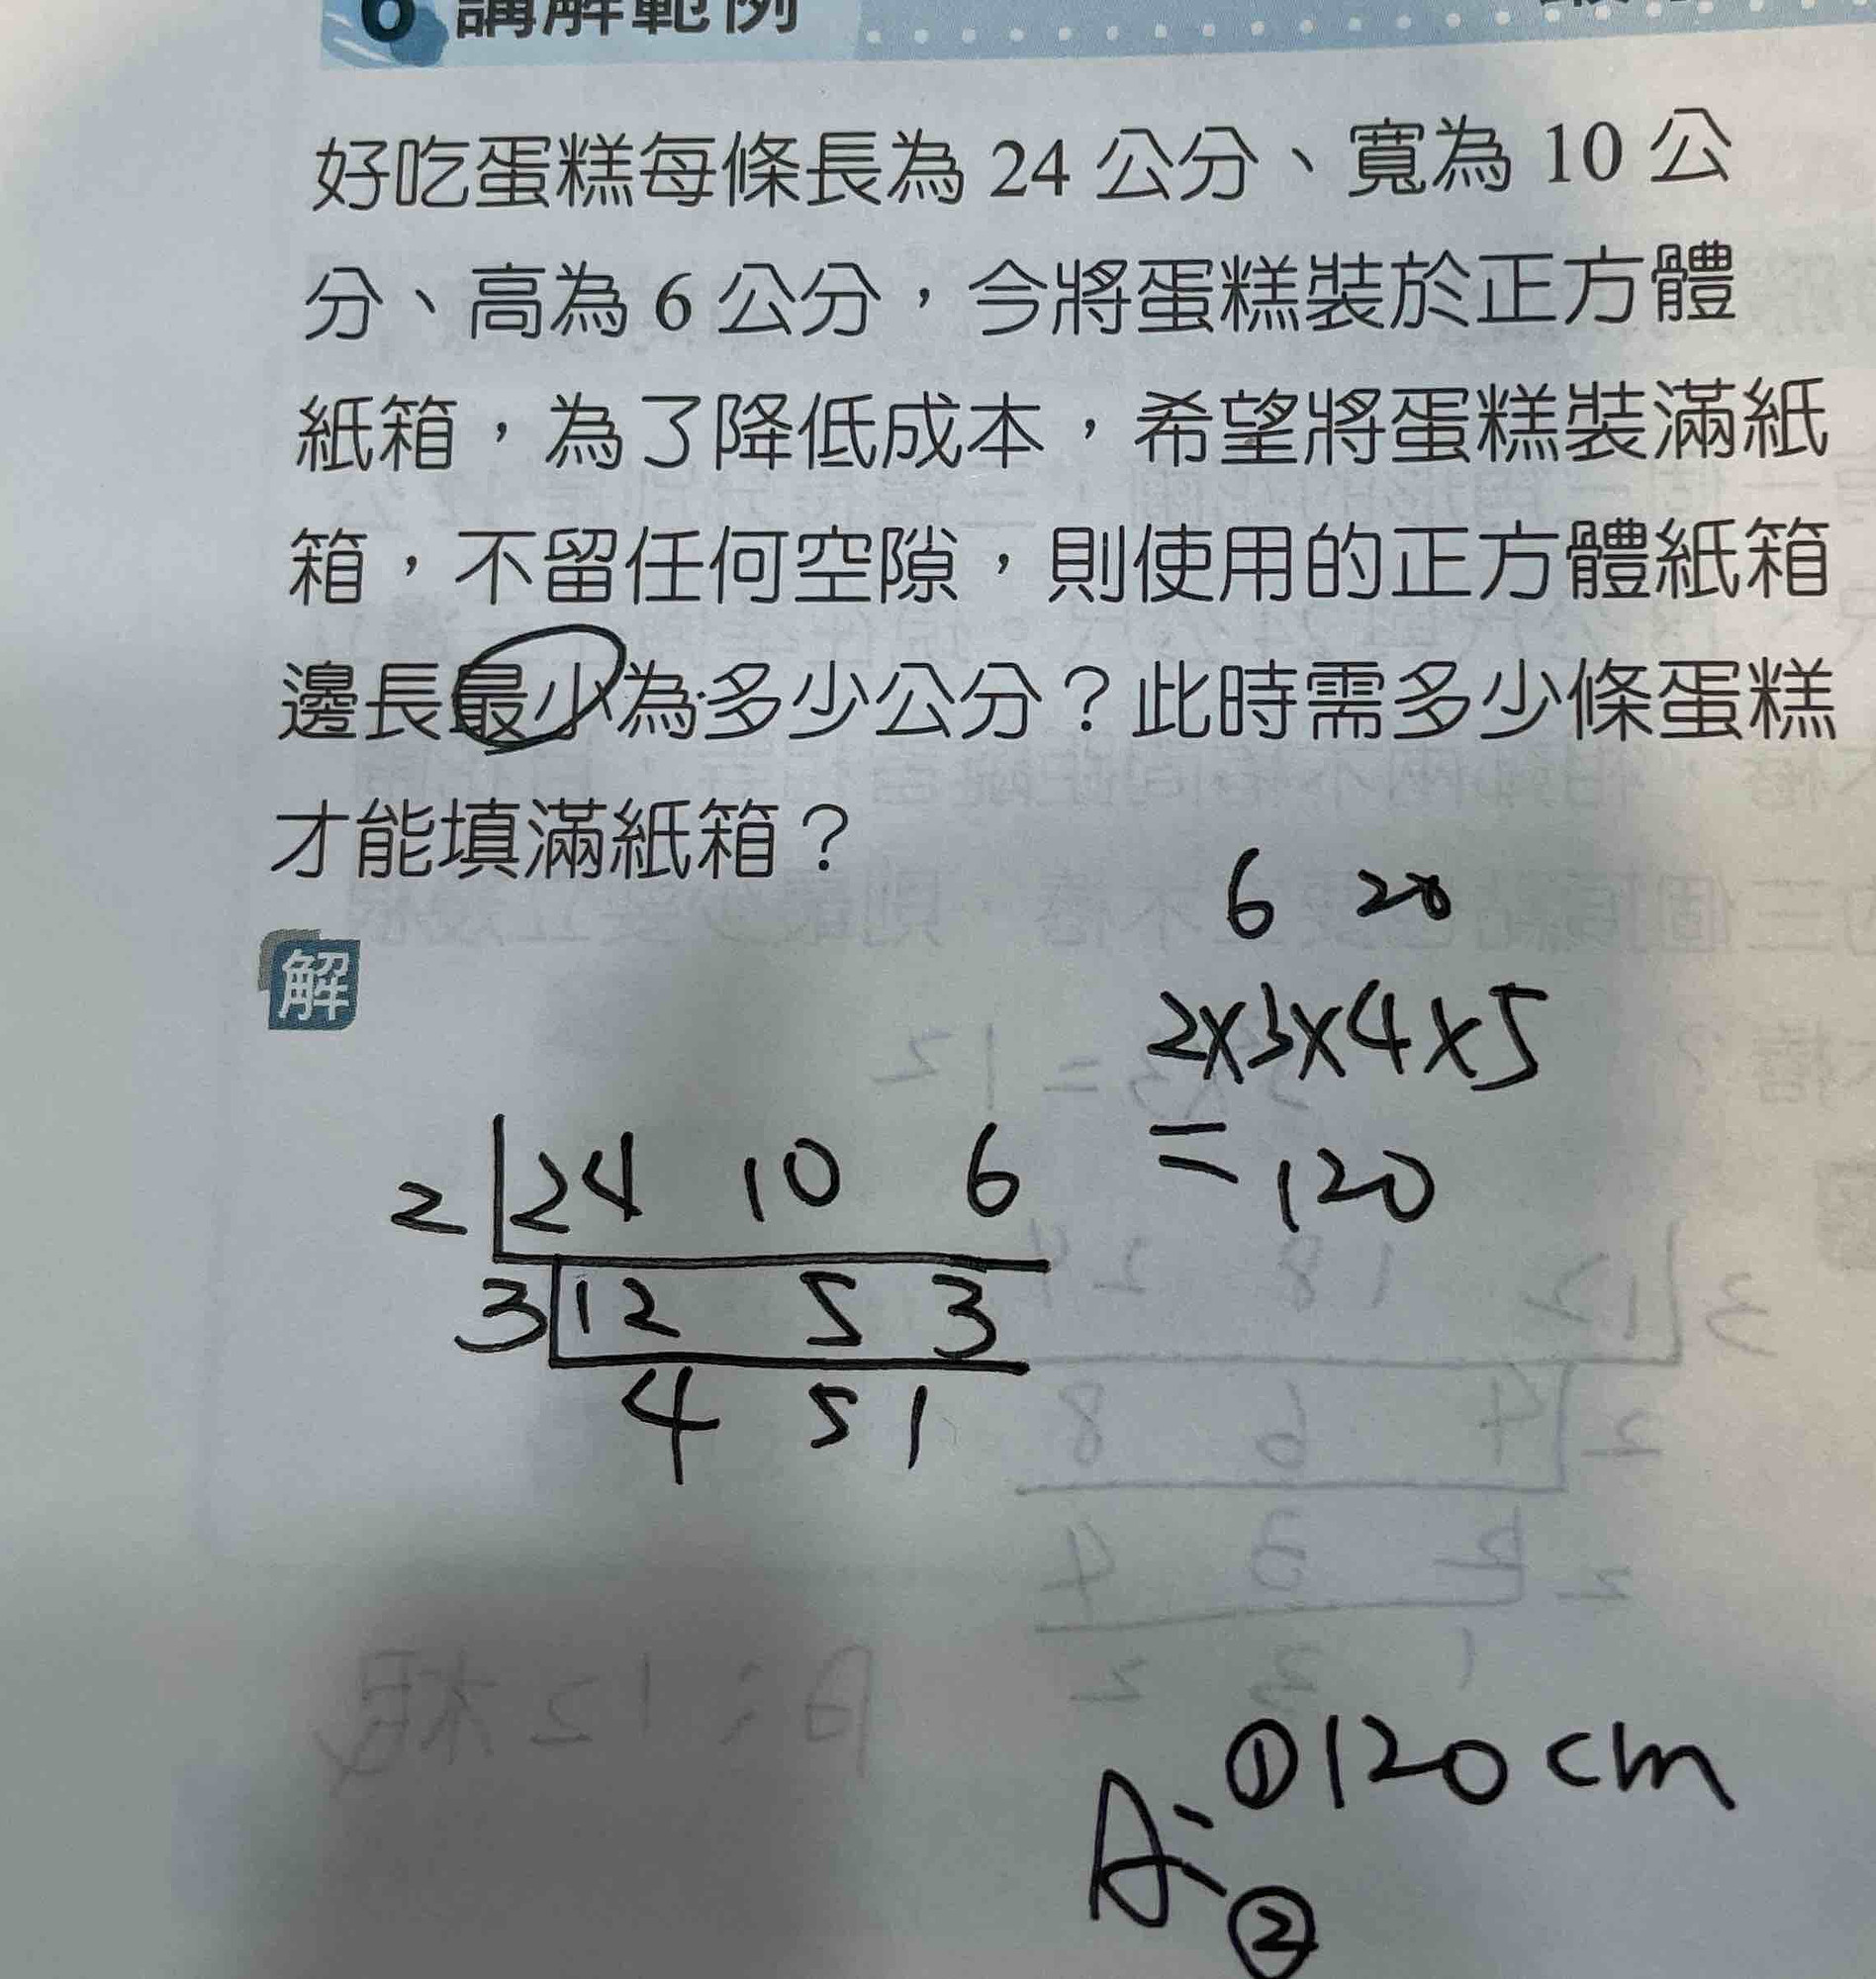 6 講解範例
好吃蛋糕每條長為 24 公分、寬為 10 公
分、高為 6 公分，今將蛋糕裝於正方體
紙箱，為了降低成本，希望將蛋糕裝滿紙
箱，不留任何空隙，則使用的正方體紙箱
邊長最少為多少公分？此時需多少條蛋糕
才能填滿紙箱？
解
6 20
2×3×4×5
=120
2 24 10 6
3 12 5 3
4 5 1
A: ①120cm
②